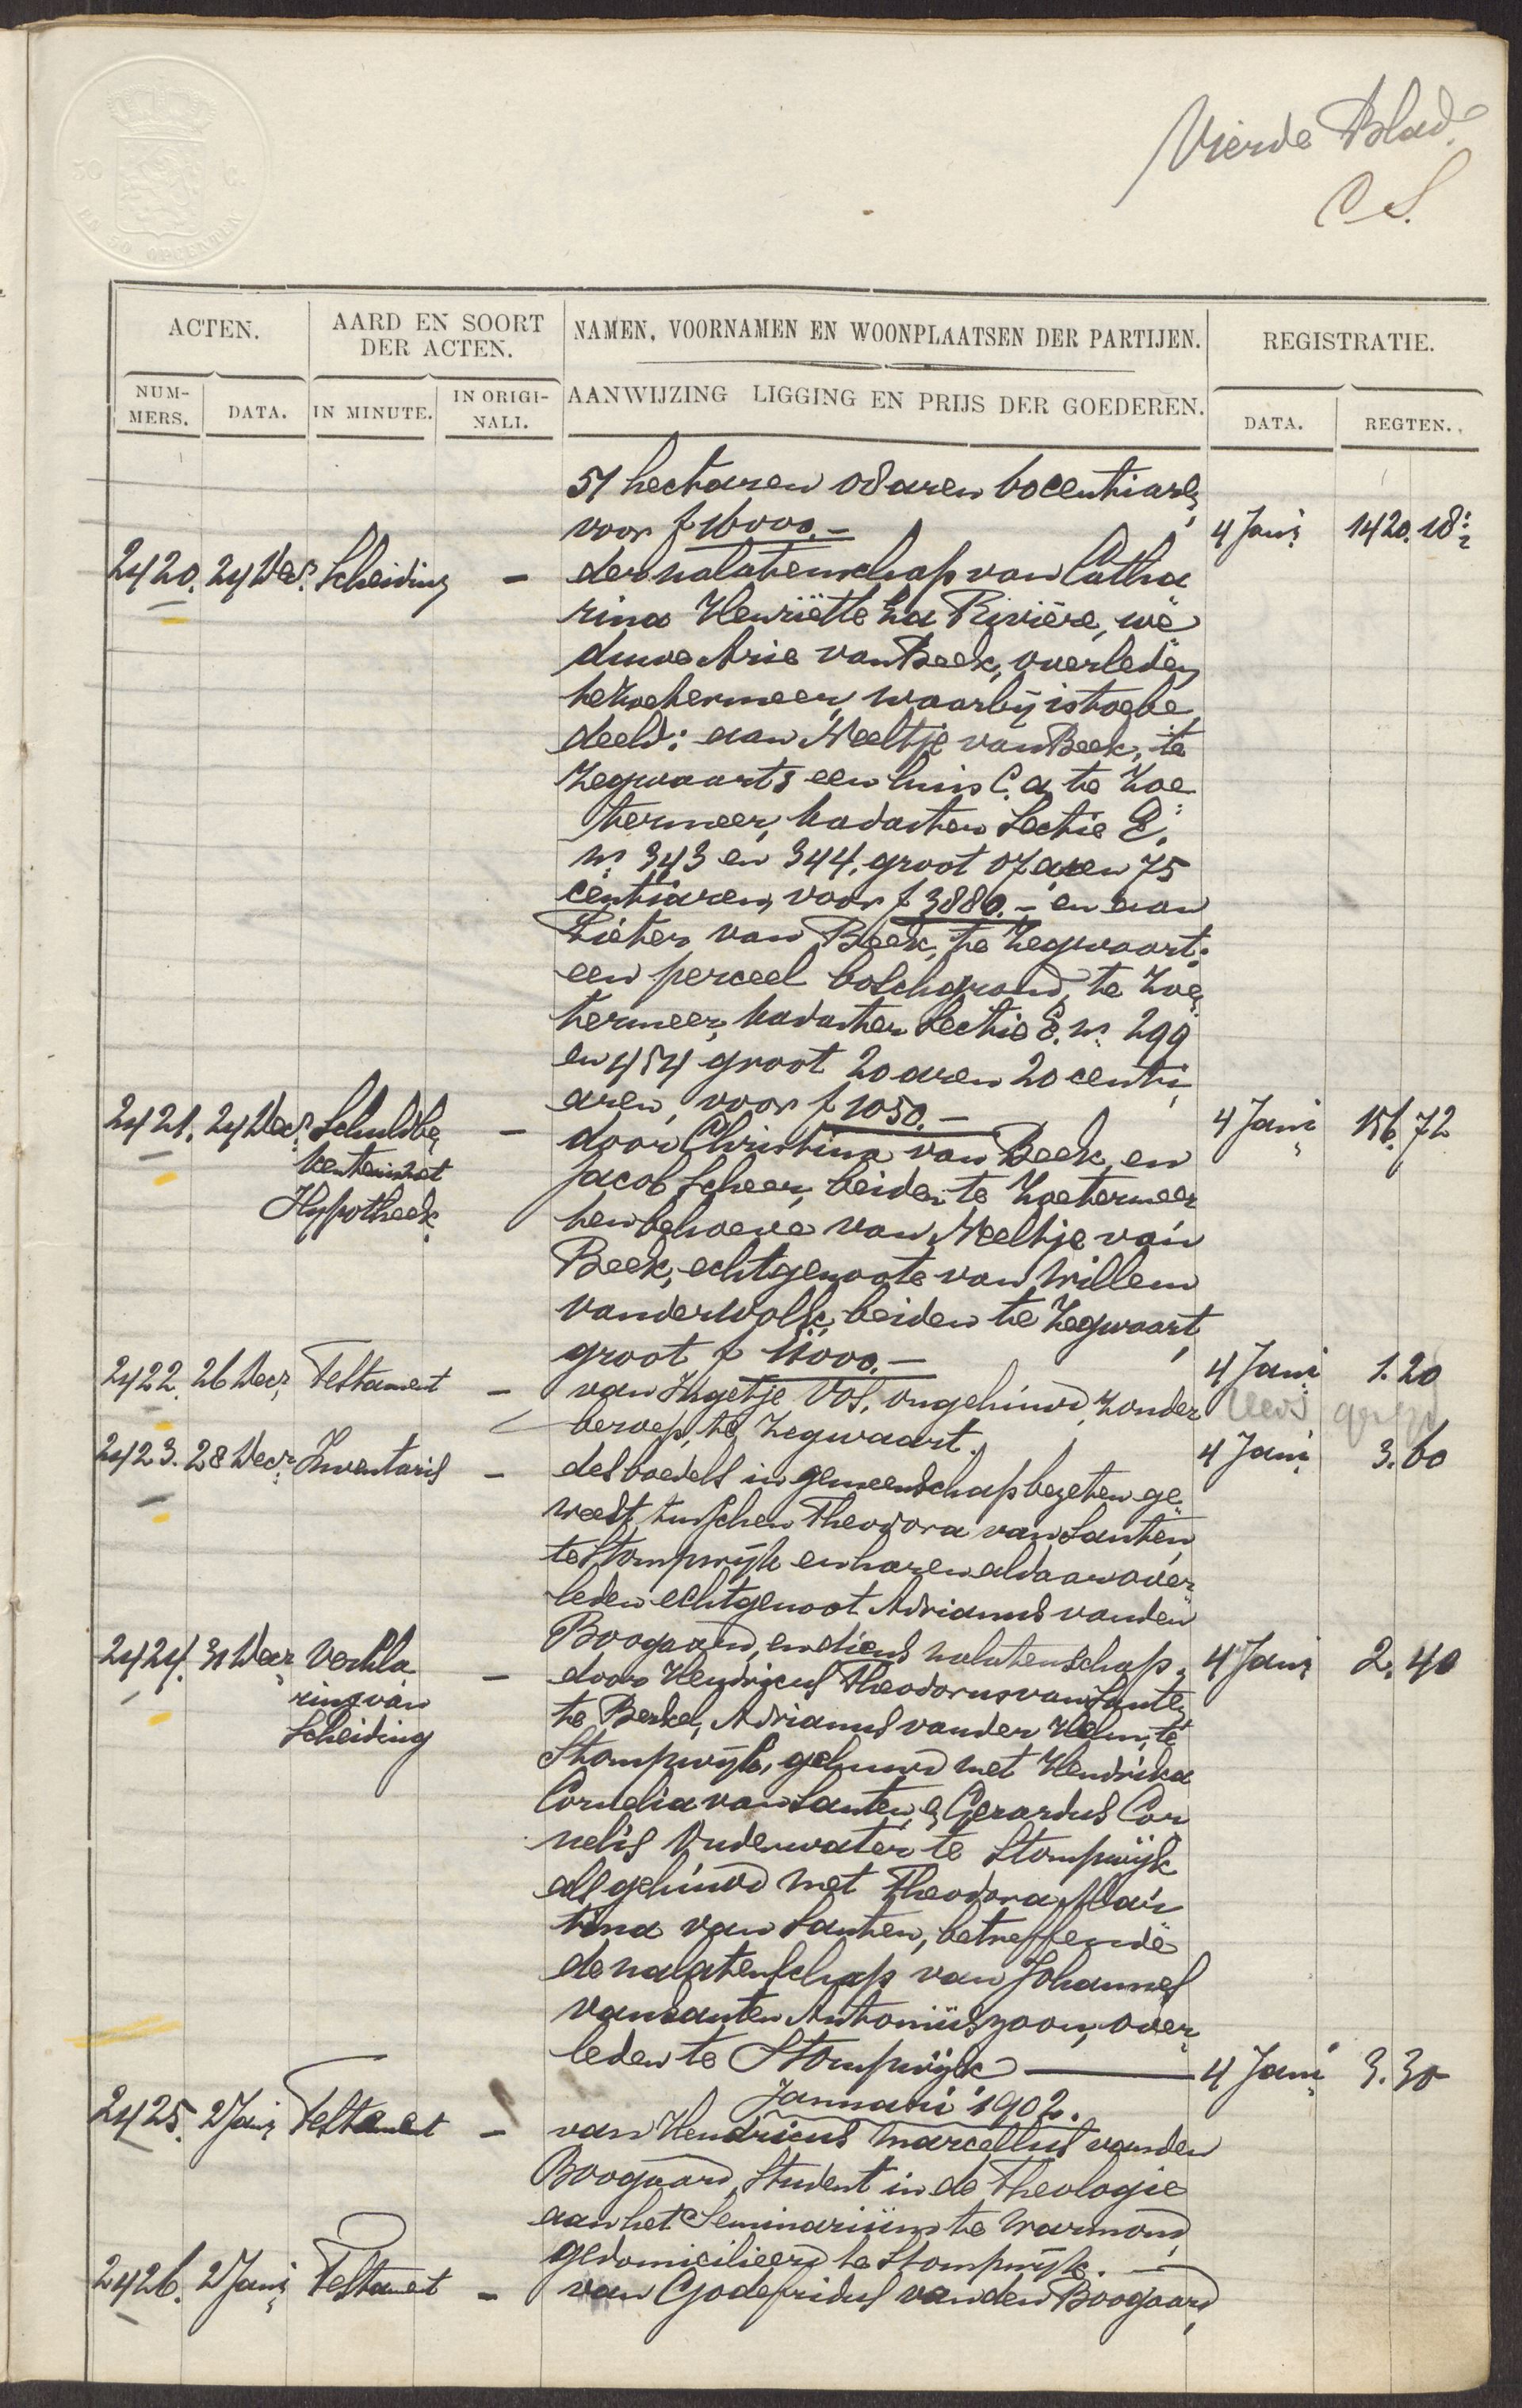 Vierde Blad.
C S.
30 C.
EN 50 OPCENTEN
ACTEN.
AARD EN SOORT DER ACTEN.
NAMEN, VOORNAMEN EN WOONPLAATSEN DER PARTIJEN.
REGISTRATIE.
NUM-MERS.
DATA.
IN MINUTE.
IN ORIGI-NALI.
AANWIJZING LIGGING EN PRIJS DER GOEDEREN.
DATA.
REGTEN.
51 hectaren 08 aren 60 centiaren
voor f 16000.- 4 Jani 1420.18
2420. 24 Decr. Scheiding - der nalatenschap van Catha
rina Henriëtte La Rivière, we
duwe Arie van Beek, overleden
te Zoetermeer, waarbij is toebe
deeld: aan Neeltje van Beek, te
Zegwaart een huis c.a. te Zoe
termeer, kadaster Sectie E.
nrs. 343 en 344. groot 07 aren 75
centiaren, voor f 3880.- en aan
Pieter van Beek, te Zegwaart:
een perceel boschgrond, te Zoe
termeer, kadaster Sectie E. nrs. 299
en 454 groot 20 aren 20 centi
aren, voor f 1050.- 4 Jani 156.72
2421. 24 Decr. Schuldbe - door Christina van Beek, en
kentenis met Jacob Scheer, beiden te Zoetermeer
Hypotheek. ten behoeve van Neeltje van
Beek, echtgenoote van Willem
van der Wolk, beiden te Zegwaart,
groot f 11000.- 4 Jani 1.20
2422. 26 Decr. Testament - van Ingetje Vos, ongehuwd, zonder
beroep, te Zegwaart. 4 Jani 3.60
2423. 28 Decr. Inventaris - des boedels in gemeenschap bezeten ge
weest tusschen Theodora van Santen
te Stompwijk en haren aldaar over
leden echtgenoot Adrianus van den
Boogaard, en diens nalatenschap. 4 Jani 2.40
2424. 31 Decr. Verkla - door Hendricus Theodorus van Santen
ring van te Berkel, Adrianus van der Helm, te
Scheiding Stompwijk, gehuwd met Hendrika
Cornelia van Santen, en Gerardus Cor
nelis Onderwater te Stompwijk
als gehuwd met Theodora Mar
tina van Santen, betreffende
de nalatenschap van Johannes
van Santen Antoniuszoon, over
leden te Stompwijk 4 Jani 3.30
Januari 1902.
2425. 2 Jani Testament - van Hendricus Marcellus van den
Boogaard, Student in de Theologie
aan het Seminarium te Warmond,
gedomicilieerd te Stompwijk.
2426. 2 Jani Testament - van Godefridus van den Boogaard,